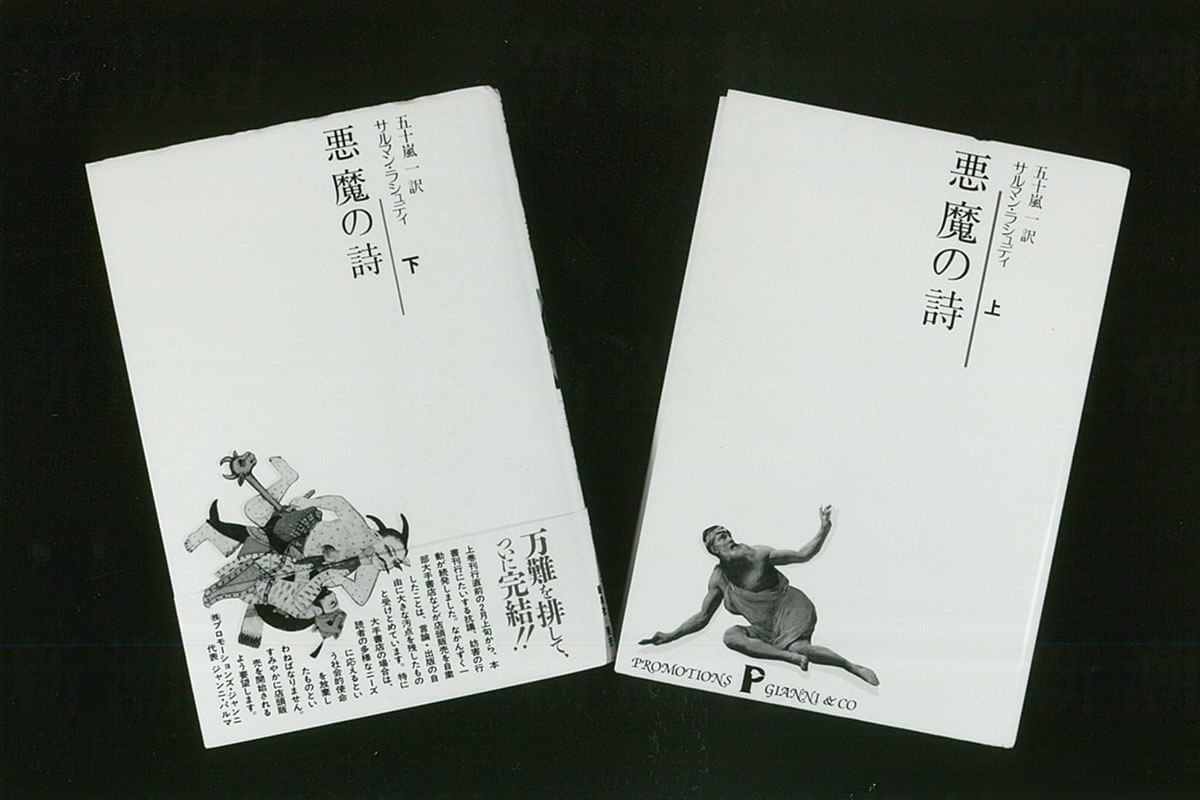 五十嵐一 訳
サルマン・ラシュディ
悪魔の詩
下
万難を排して、
ついに完結!!
上巻刊行直前の2月上旬から、本
書刊行にたいする抗議、妨害の行
動が続発しました。なかんずく一
部大手書店などが店頭販売を自粛
したことは、言論・出版の自
由に大きな汚点を残したもの
と受けとめています。特に
大手書店の場合は、
読者の多様なニーズ
に応えるとい
う社会的使命
を放棄し
たものとい
わねばなりません。
すみやかに店頭販
売を開始される
よう要望します。
㈱プロモーションズ・ジャンニ
代表 ジャンニ・パルマ
五十嵐一 訳
サルマン・ラシュディ
悪魔の詩
上
PROMOTIONS P GIANNI & CO